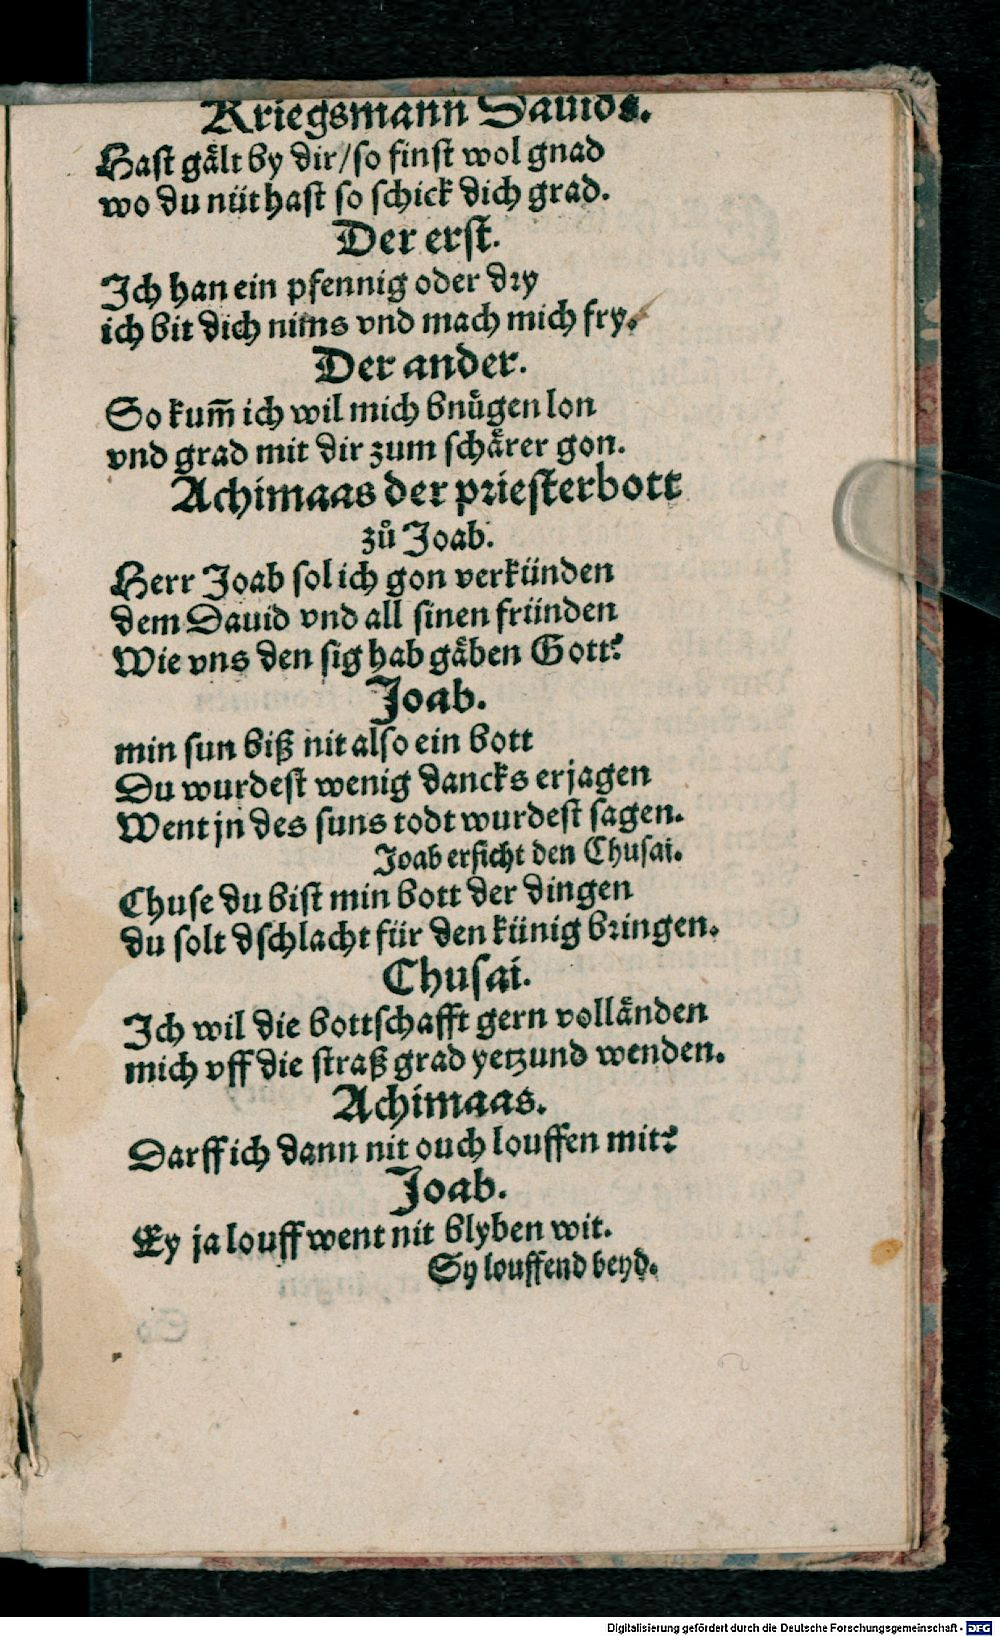 Kriegsmann Dauids.
Hast gält by dir/so finst wol gnad
wo du nüt hast so schick dich grad.
Der erst.
Ich han ein pfennig oder dry
ich bit dich nims vnd mach mich fry.
Der ander.
So kum̃ ich wil mich bnuͤgen lon
vnd grad mit dir zum schärer gon.
Achimaas der priesterbott
zuͦ Joab.
Herr Joab sol ich gon verkünden
dem Dauid vnd all sinen fründen
Wie vns den sig hab gäben Gott?
Joab.
min sun biß nit also ein bott
Du wurdest wenig dancks erjagen
Went jn des suns todt wurdest sagen.
Joab ersicht den Chusai.
Chuse du bist min bott der dingen
du solt dschlacht für den künig bringen.
Chusai.
Ich wil die bottschafft gern volländen
mich vff die straß grad yetzund wenden.
Achimaas.
Darff ich dann nit ouch louffen mit?
Joab.
Ey ja louff went nit blyben wit.
Sy louffend beyd.
Digitalisierung gefördert durch die Deutsche Forschungsgemeinschaft - DFG